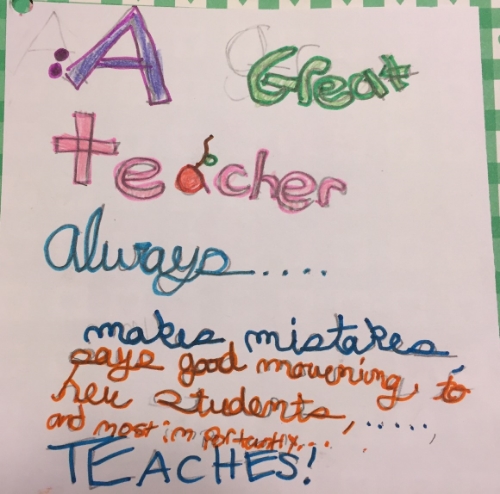 :A Great
teacher
always....
makes mistakes,
says good mourning, to
her students,.....,
and most importantly...
TEACHES!